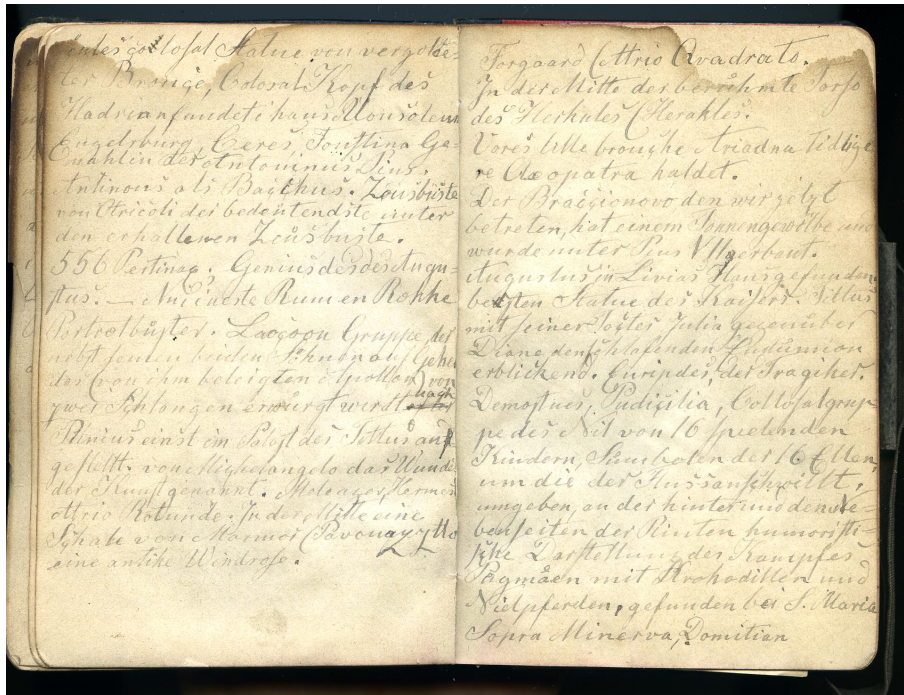 collosal Statue von vergolde-
ter Bronçe, Colosal Kopf des
Hadrian fandet i hans Mousoleum
Engelsburg, Ceres, Faustina Ge-
mahlin des Antoninus Pius.
Antinous als Bacchus. Zeusbüste
von Otricoli die bedeutendste unter
den erhaltenen Zeusbuste.
556 Pertinax. Genius des des Augu-
stus. — Rum en Rekke
Portrætbüster. Laocoon Gruppe, der
nebst seinen beiden Söhnen auf Gehei
des (von ihm beleigten Apollon) von
zwei Schlangen erwürgt wird nach
Plinius einst im Palast des Tittus auf-
gestellt. von Michelangelo das Wunde
der Kunst genannt. Meleager, Hermes
Attrio Rotunde. In der Mitte eine
Schale von Marmor (Pavonazzytto
eine antike Windrose.
Forgaard (Attrio Qvadrato.
In der Mitte der berühmte Torso
des Herkules (Herakles.
Ariadna tidlige
re Cleopatra haldet.
Der Braççionovo den wir jetzt
betreten, hat einem Tonnengewölbe und
wurde unter Pius VII gerbaut.
Augustus in Livias Haus gefunden
besten Statue des Kaisers. Tittus
mit seiner Togtes Julia gegenüber
Diane den schlafenden Endümion
erblickend. Euripdes, der Tragiker.
Demostnes, Pudicilia, Collosalgrup-
pe des Nil von 16 spielenden
Kindern, Sümbolen der 16 Ellen,
um die der Flussanschwillt,
umgeben, an der hinter und den Ne-
benseiten der Plinten humoristi-
sche Darstellung des Kampfes
Pügmäen mit Krokodillen und
Nielpferden, gefunden bei S. Maria
Sopra Minerva, Domitian